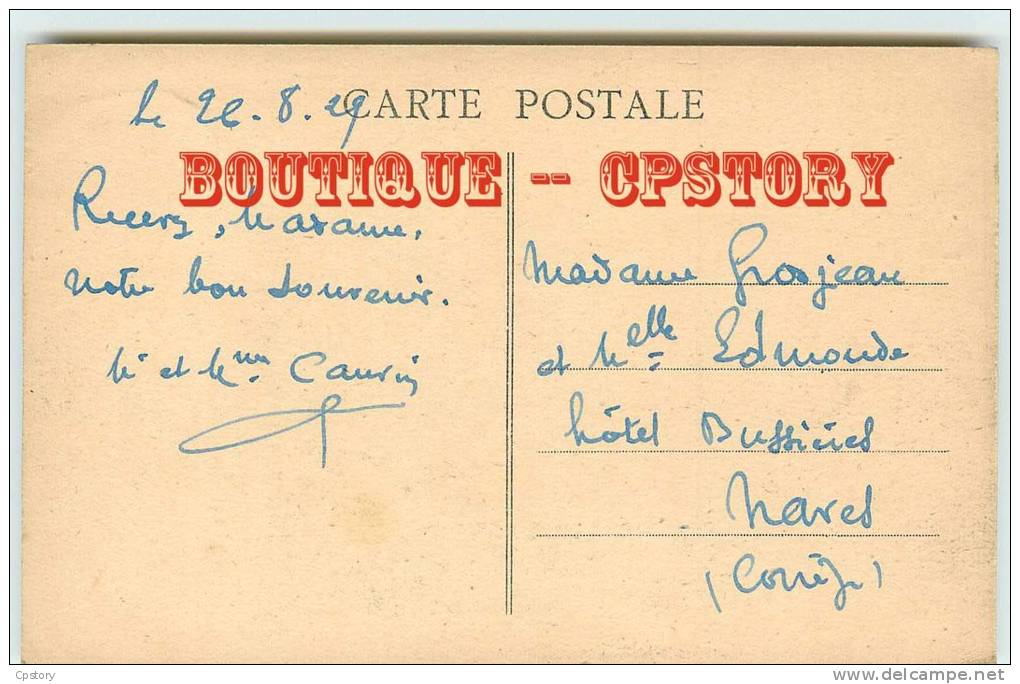 CARTE POSTALE
Le 26.8.29
BOUTIQUE -- CPSTORY
Recevez, Madame,
notre bon souvenir.
Mr et Mme
Madame Grosjean
et Melle Edmonde
hôtel Bussières
Naves
(Corrèze)
Cpstory
www.delcampe.net